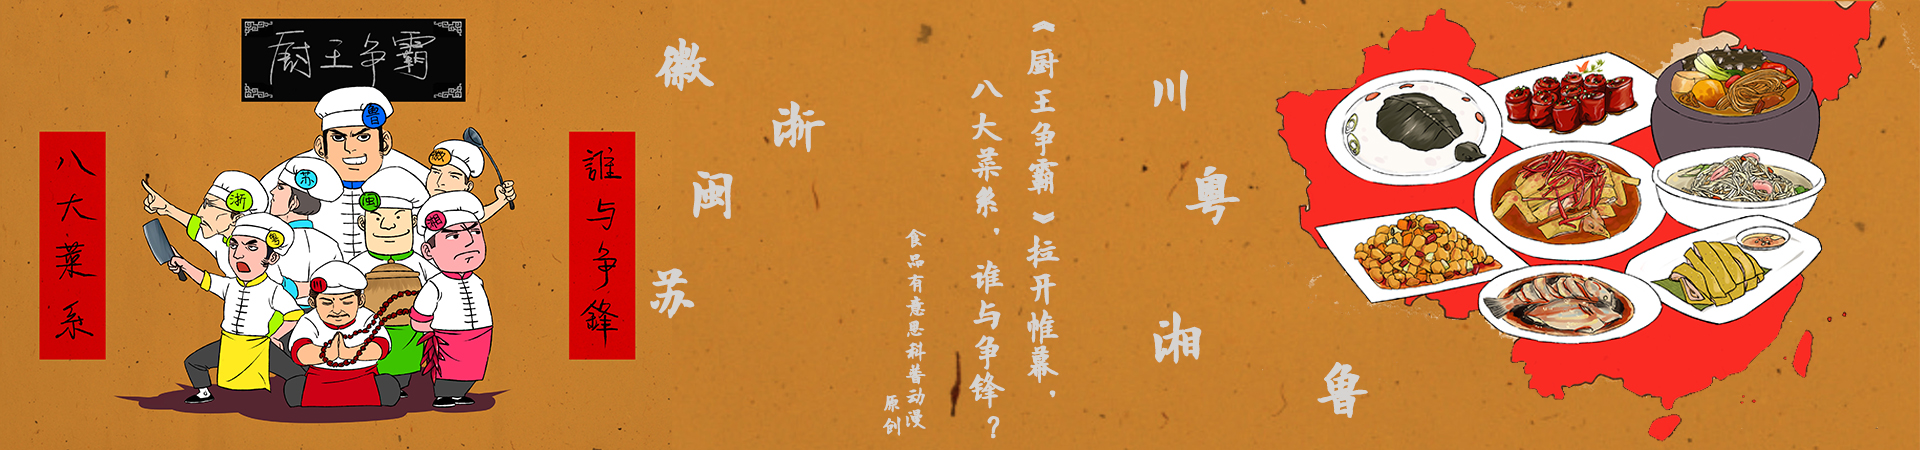 厨王争霸
八大菜系
誰与争鋒
鲁
徽
苏
浙
闽
湘
粤
川
徽
浙
闽
苏
《厨王争霸》拉开帷幕，
八大菜系，谁与争锋？
食品有意思科普动漫
原创
川
粤
湘
鲁